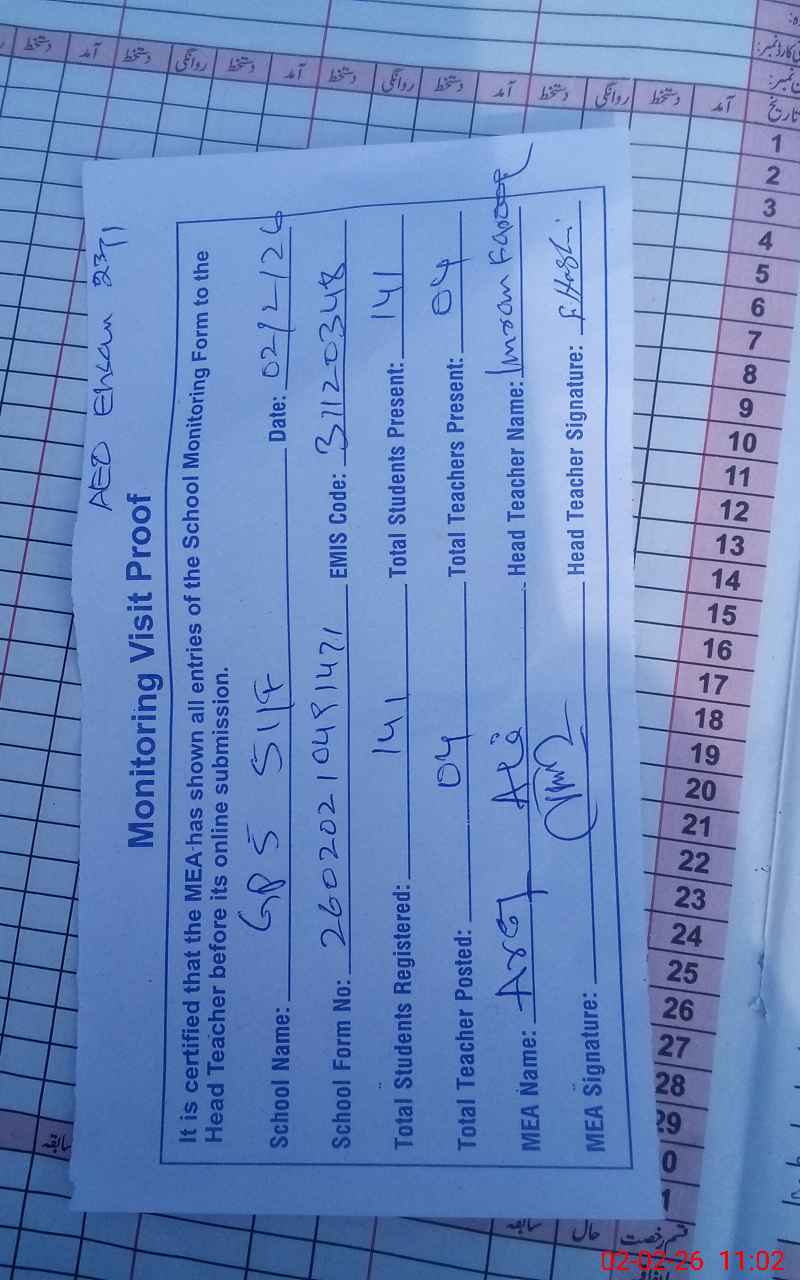 AEO Ehsan 23/1
Monitoring Visit Proof
It is certified that the MEA has shown all entries of the School Monitoring Form to the
Head Teacher before its online submission.
School Name: GPS 51/F Date: 02/2/26
School Form No: 2602021049 1421 EMIS Code: 31120348
Total Students Registered: 141 Total Students Present: 141
Total Teacher Posted: 04 Total Teachers Present: 04
MEA Name: Ali Head Teacher Name: Imran Farooq
MEA Signature: Head Teacher Signature:
تاریخ آمد دستخط روانگی دستخط آمد دستخط روانگی دستخط آمد دستخط روانگی دستخط آمد دستخط
1
2
3
4
5
6
7
8
9
10
11
12
13
14
15
16
17
18
19
20
21
22
23
24
25
26
27
28
29
0
1
قسم رخصت حال سابقہ
02-02-26 11:02